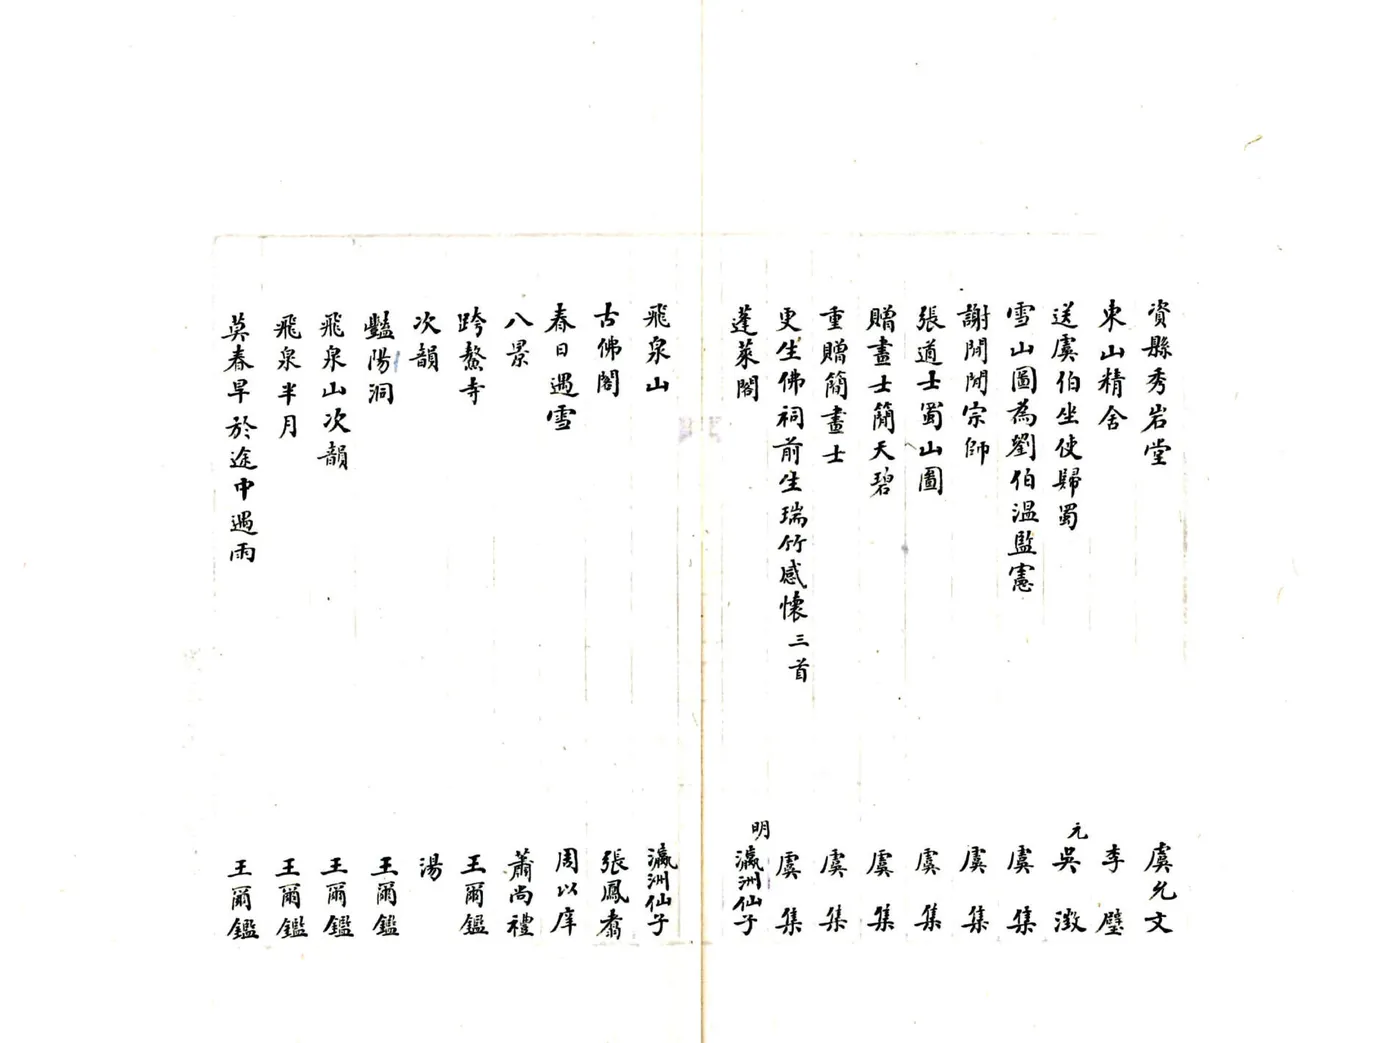 資縣秀岩堂 虞允文
東山精舍 李璧
送虞伯坐使歸蜀 元 吳澂
雪山圖為劉伯溫監憲 虞集
謝閒閒宗師 虞集
張道士蜀山圖 虞集
贈畫士簡天碧 虞集
重贈簡畫士 虞集
更生佛祠前生瑞竹感懷三首 虞集
蓬萊閣 明 瀛洲仙子
飛泉山 瀛洲仙子
古佛閣 張鳳翥
春日遇雪 周以庠
八景 蕭尚禮
跨鰲寺 王爾鑑
次韻 湯
豔陽洞 王爾鑑
飛泉山次韻 王爾鑑
飛泉半月 王爾鑑
莫春早於途中遇雨 王爾鑑